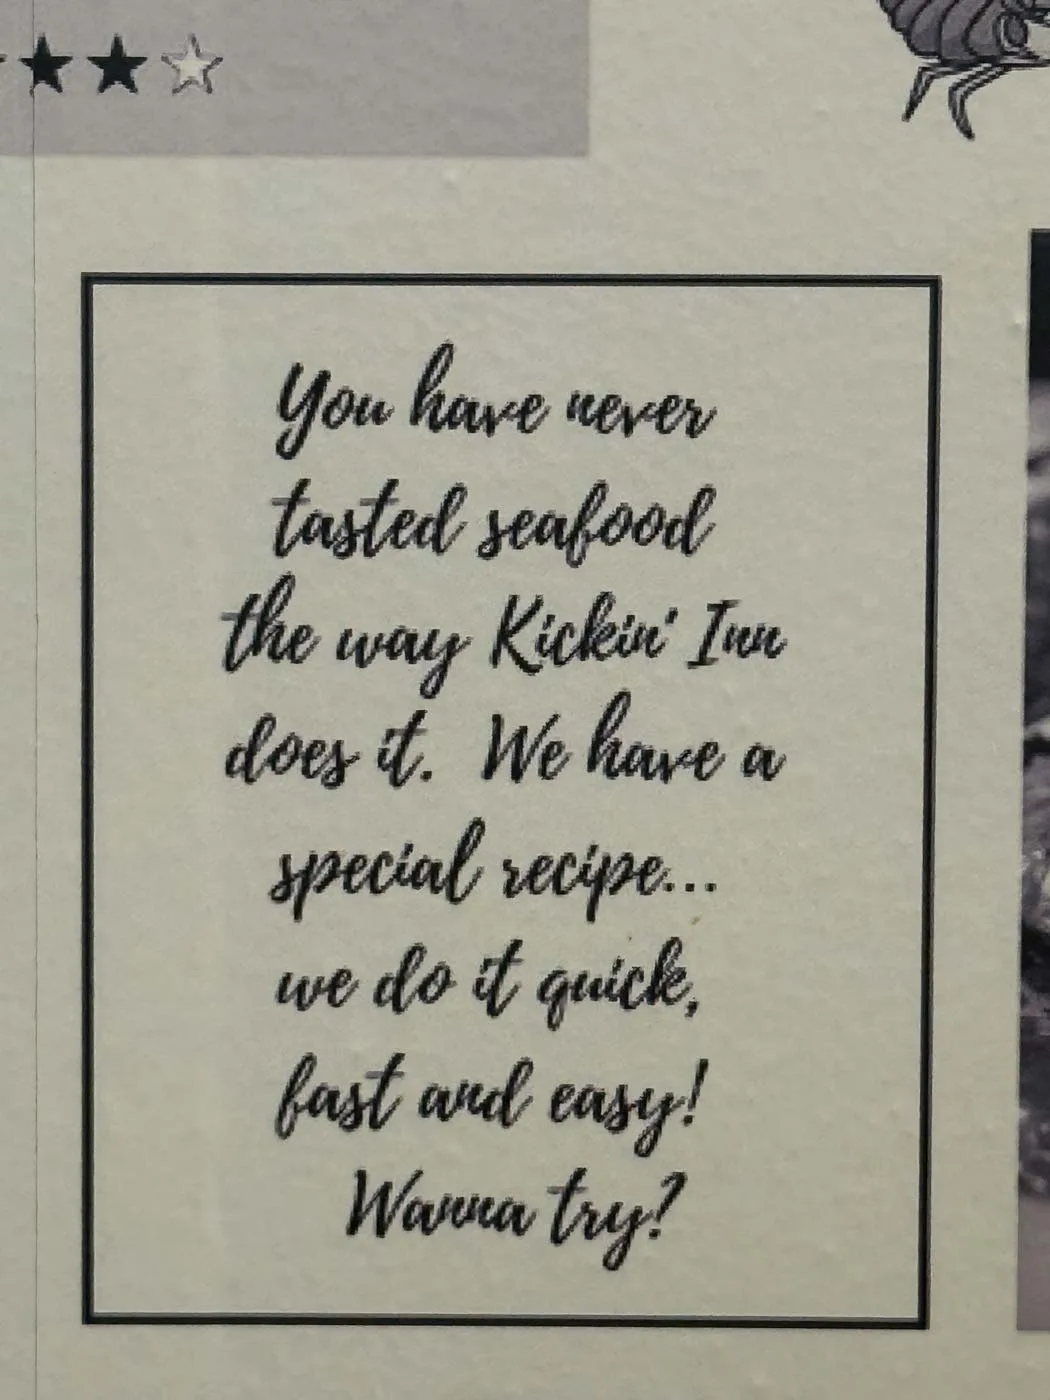 You have never
tasted seafood
the way Kickin' Inn
does it. We have a
special recipe...
we do it quick,
fast and easy!
Wanna try?